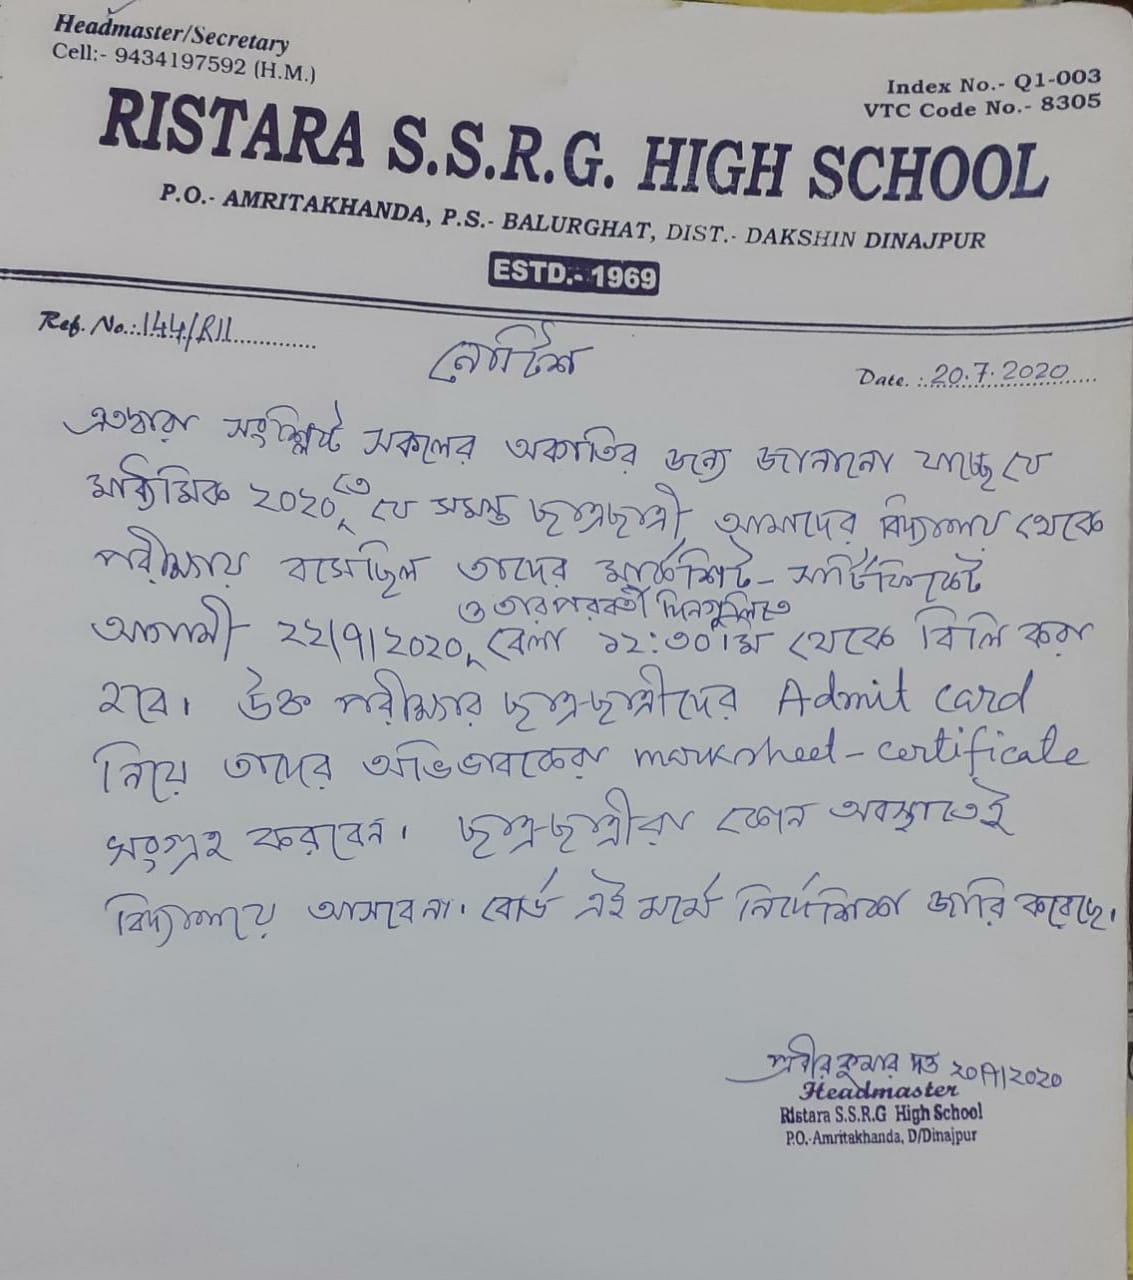 Headmaster/Secretary
Cell:- 9434197592 (H.M.)
Index No.- Q1-003
VTC Code No.- 8305
RISTARA S.S.R.G. HIGH SCHOOL
P.O.- AMRITAKHANDA, P.S.- BALURGHAT, DIST.- DAKSHIN DINAJPUR
ESTD.- 1969
Ref. No.:.144/RII
Date. : 20.7.2020
নোটিশ
এতদ্বারা সংশ্লিষ্ট সকলের অবগতির জন্যে জানানো যাচ্ছে যে
মাধ্যমিক ২০২০ তে যে সমস্ত ছাত্রছাত্রী আমাদের বিদ্যালয় থেকে
পরীক্ষায় বসেছিল তাদের মার্কশিট - সার্টিফিকেট
ও তার পরবর্তী দিনগুলিতে
আগামী ২২/৭/২০২০ বেলা ১২:৩০ মি থেকে বিলি করা
হবে। উক্ত পরীক্ষার ছাত্র-ছাত্রীদের Admit card
নিয়ে তাদের অভিভাবকেরা marksheet - certificate
সংগ্রহ করবেন। ছাত্র-ছাত্রীরা কোন অবস্থাতেই
বিদ্যালয়ে আসবেনা। বোর্ড এই মর্মে নির্দেশিকা জারি করেছে।
প্রবীর কুমার দত্ত ২০/৭/২০২০
Headmaster
Ristara S.S.R.G High School
P.O.-Amritakhanda, D/Dinajpur